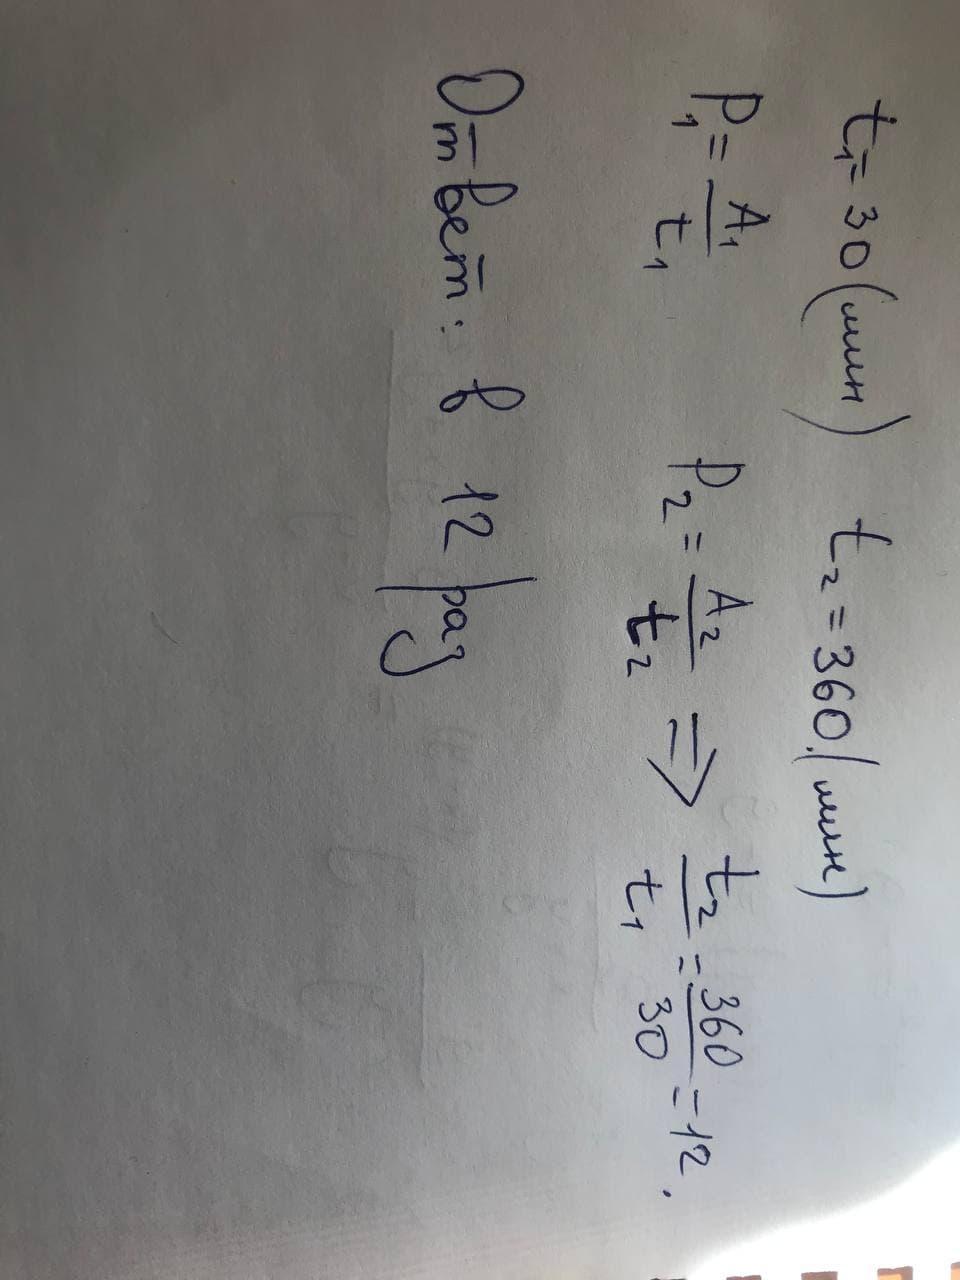 t₁=30(мин) t₂=360(мин)
P₁=A₁/t₁ P₂=A₂/t₂ ⇒ t₂/t₁=360/30=12.
Ответ: в 12 раз